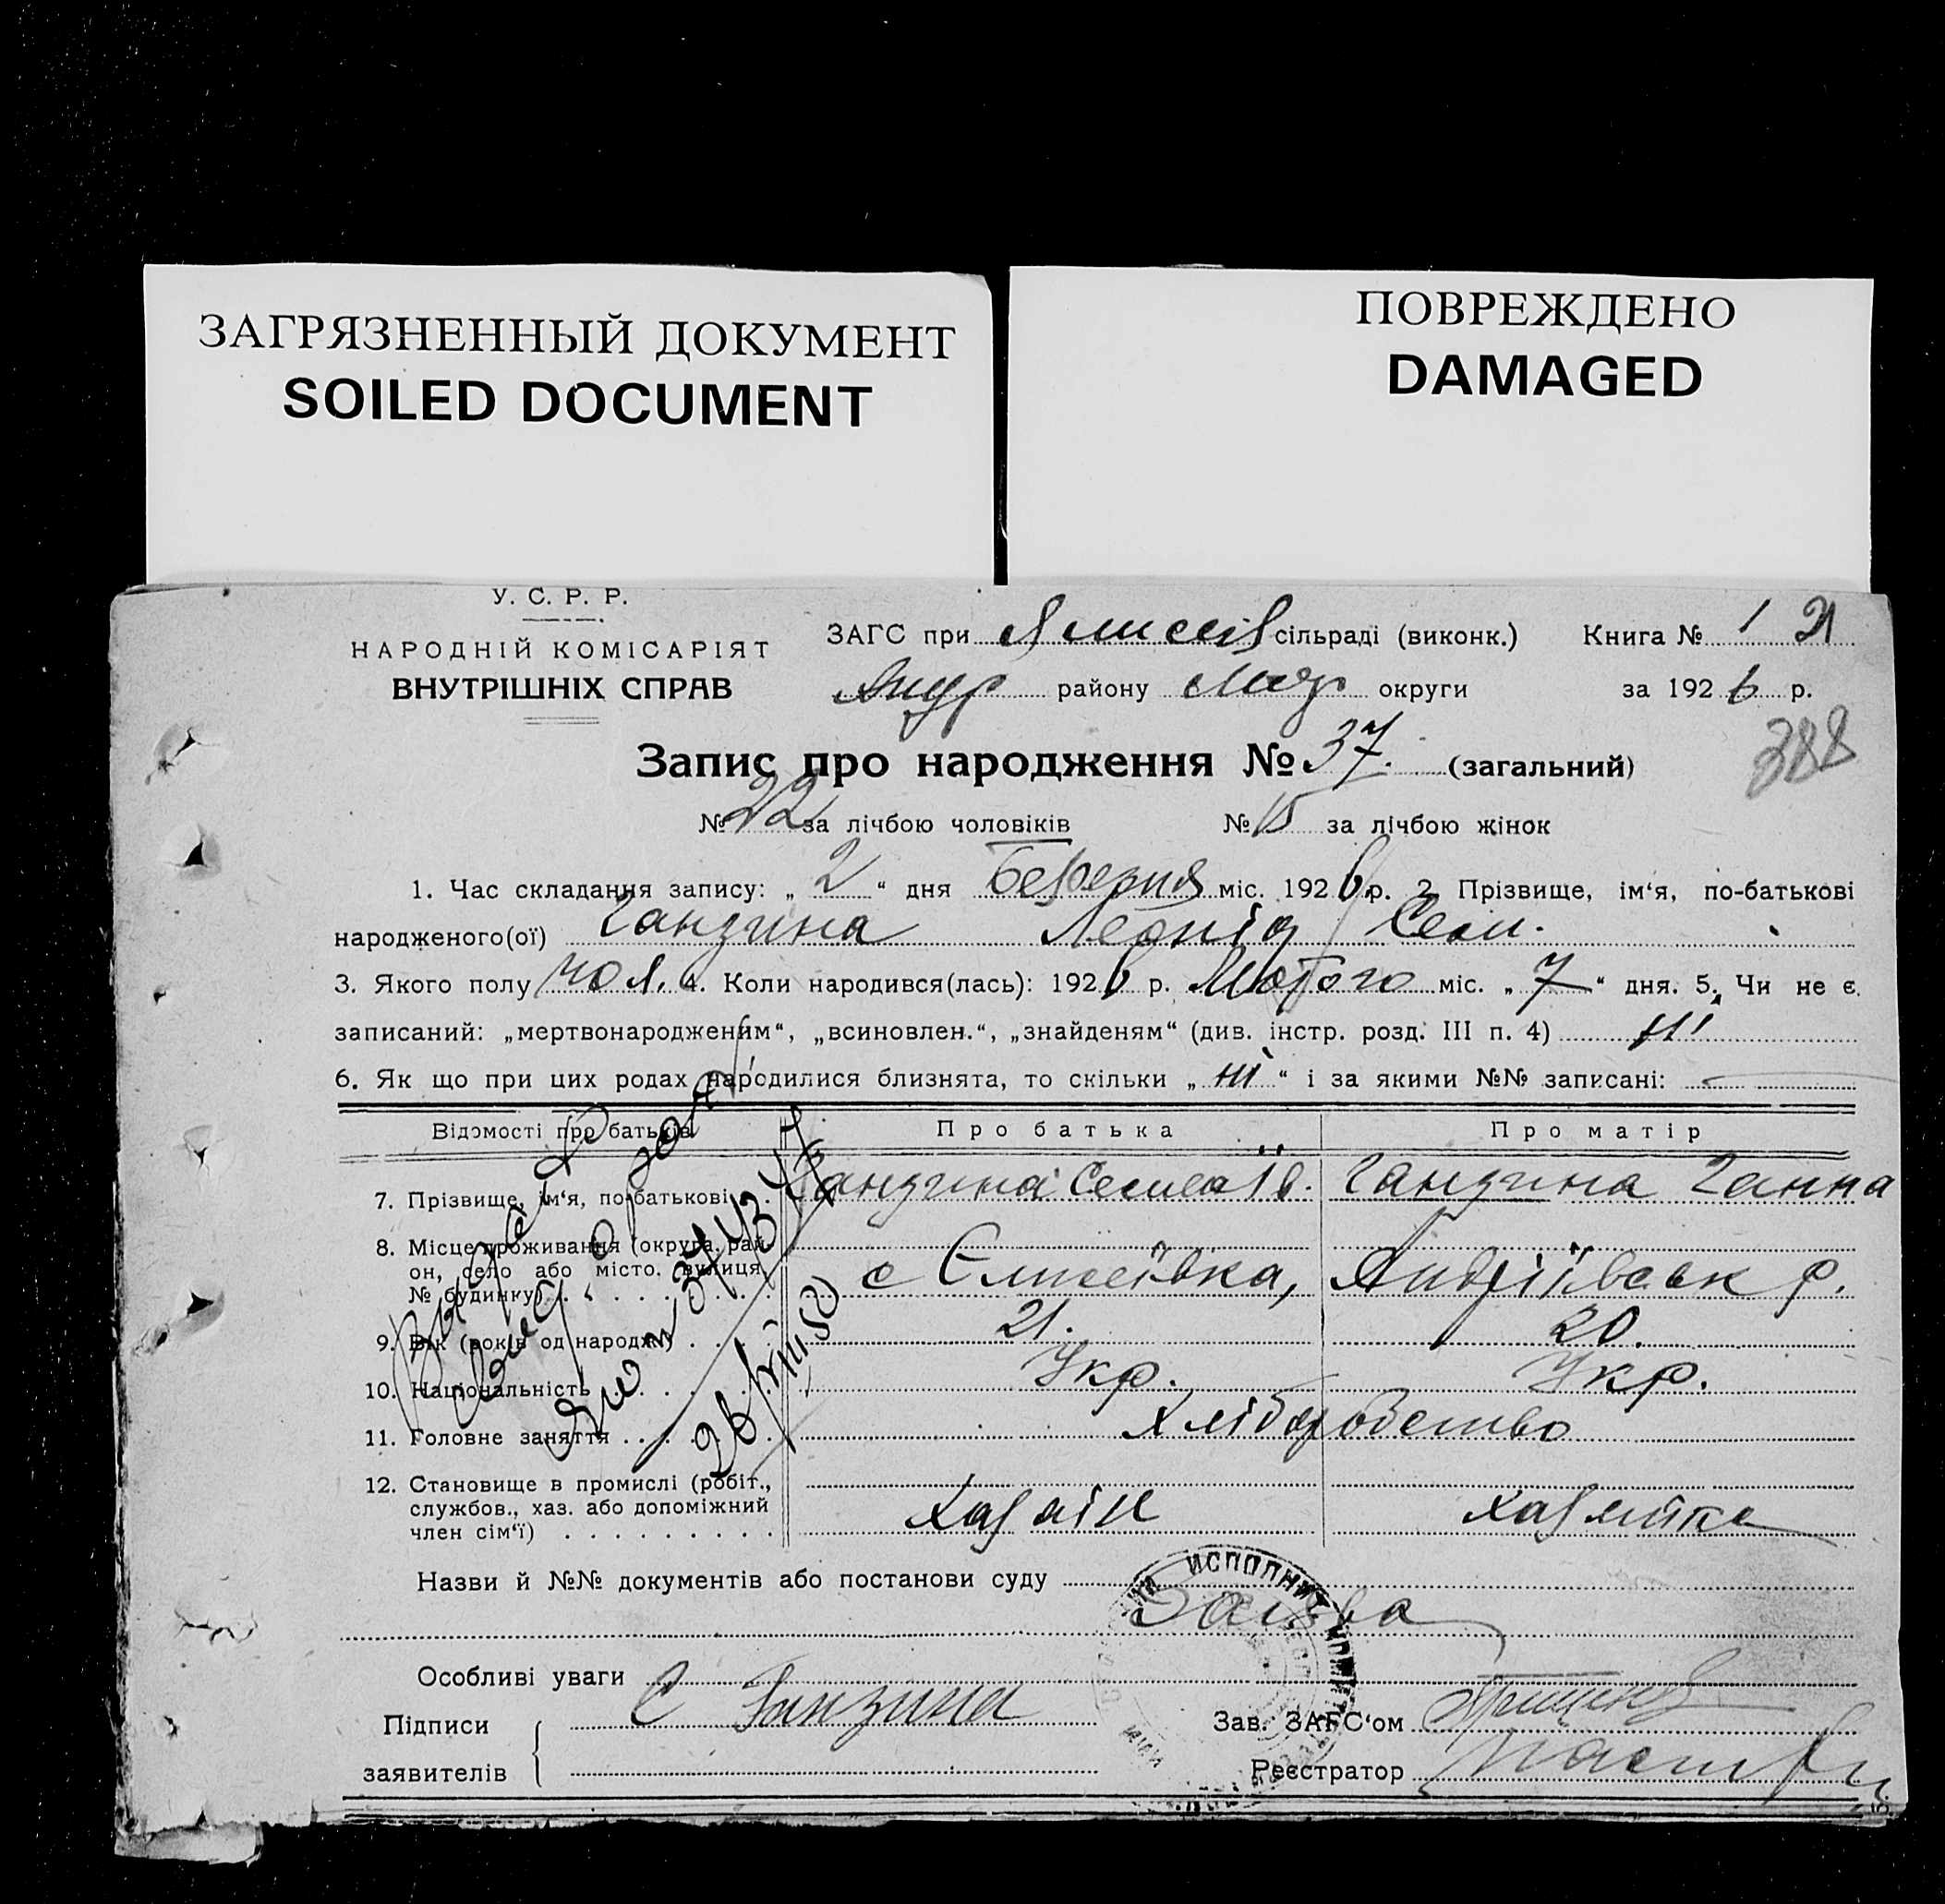 ЗАГРЯЗНЕННЫЙ ДОКУМЕНТ
SOILED DOCUMENT
ПОВРЕЖДЕНО
DAMAGED
У. С. Р. Р.
НАРОДНІЙ КОМІСАРІЯТ
ВНУТРІШНІХ СПРАВ
ЗАГС при сільраді (виконк.) Книга № 1
району округи за 1926 р.
388
Запис про народження № 37. (загальний)
№ 22 за лічбою чоловіків № 15 за лічбою жінок
1. Час складання запису: „ 2 “ дня Березня міс. 1926 р. 2. Прізвище, ім‘я, по-батькові
народженого(ої) Ганзина Леонід Сем.
3. Якого полу чол. 4. Коли народився(лась): 1926 р. Лютого міс. „ 7 “ дня. 5. Чи не є
записаний: „мертвонародженим“, „всиновлен.“, „знайденям“ (див. інстр. розд. III п. 4) ні
6. Як що при цих родах народилися близнята, то скільки „ ні “ і за якими №№ записані: —
Відомості про батьків Про батька Про матір
7. Прізвище, ім‘я, по-батькові . . Ганзина Ганзина Ганна
8. Місце проживання (округа, рай-
он, село або місто, вулиця, с Єлисеївка, р.
№ будинку)
9. Вік (років од народж) . . . 21. 20.
10. Національність Укр. Укр.
11. Головне заняття Хліборобство
12. Становище в промислі (робіт.,
службов., хаз. або допоміжний Хазяін хазяйка
член сім‘ї)
Назви й №№ документів або постанови суду
Заява
Особливі уваги
Підписи С Ганзина Зав. ЗАГС‘ом
заявителів Реєстратор